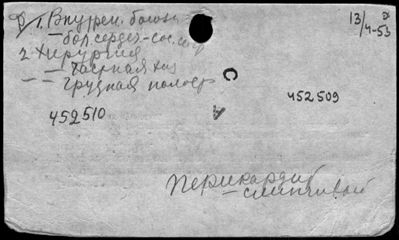 1. Внутрен. болезн
— бол. сердеч-сос.
2. Хирургия
— Частная хи
— — грудная полост
13/4-53
452510
452509
С
А
Перикардит
— слипчивый